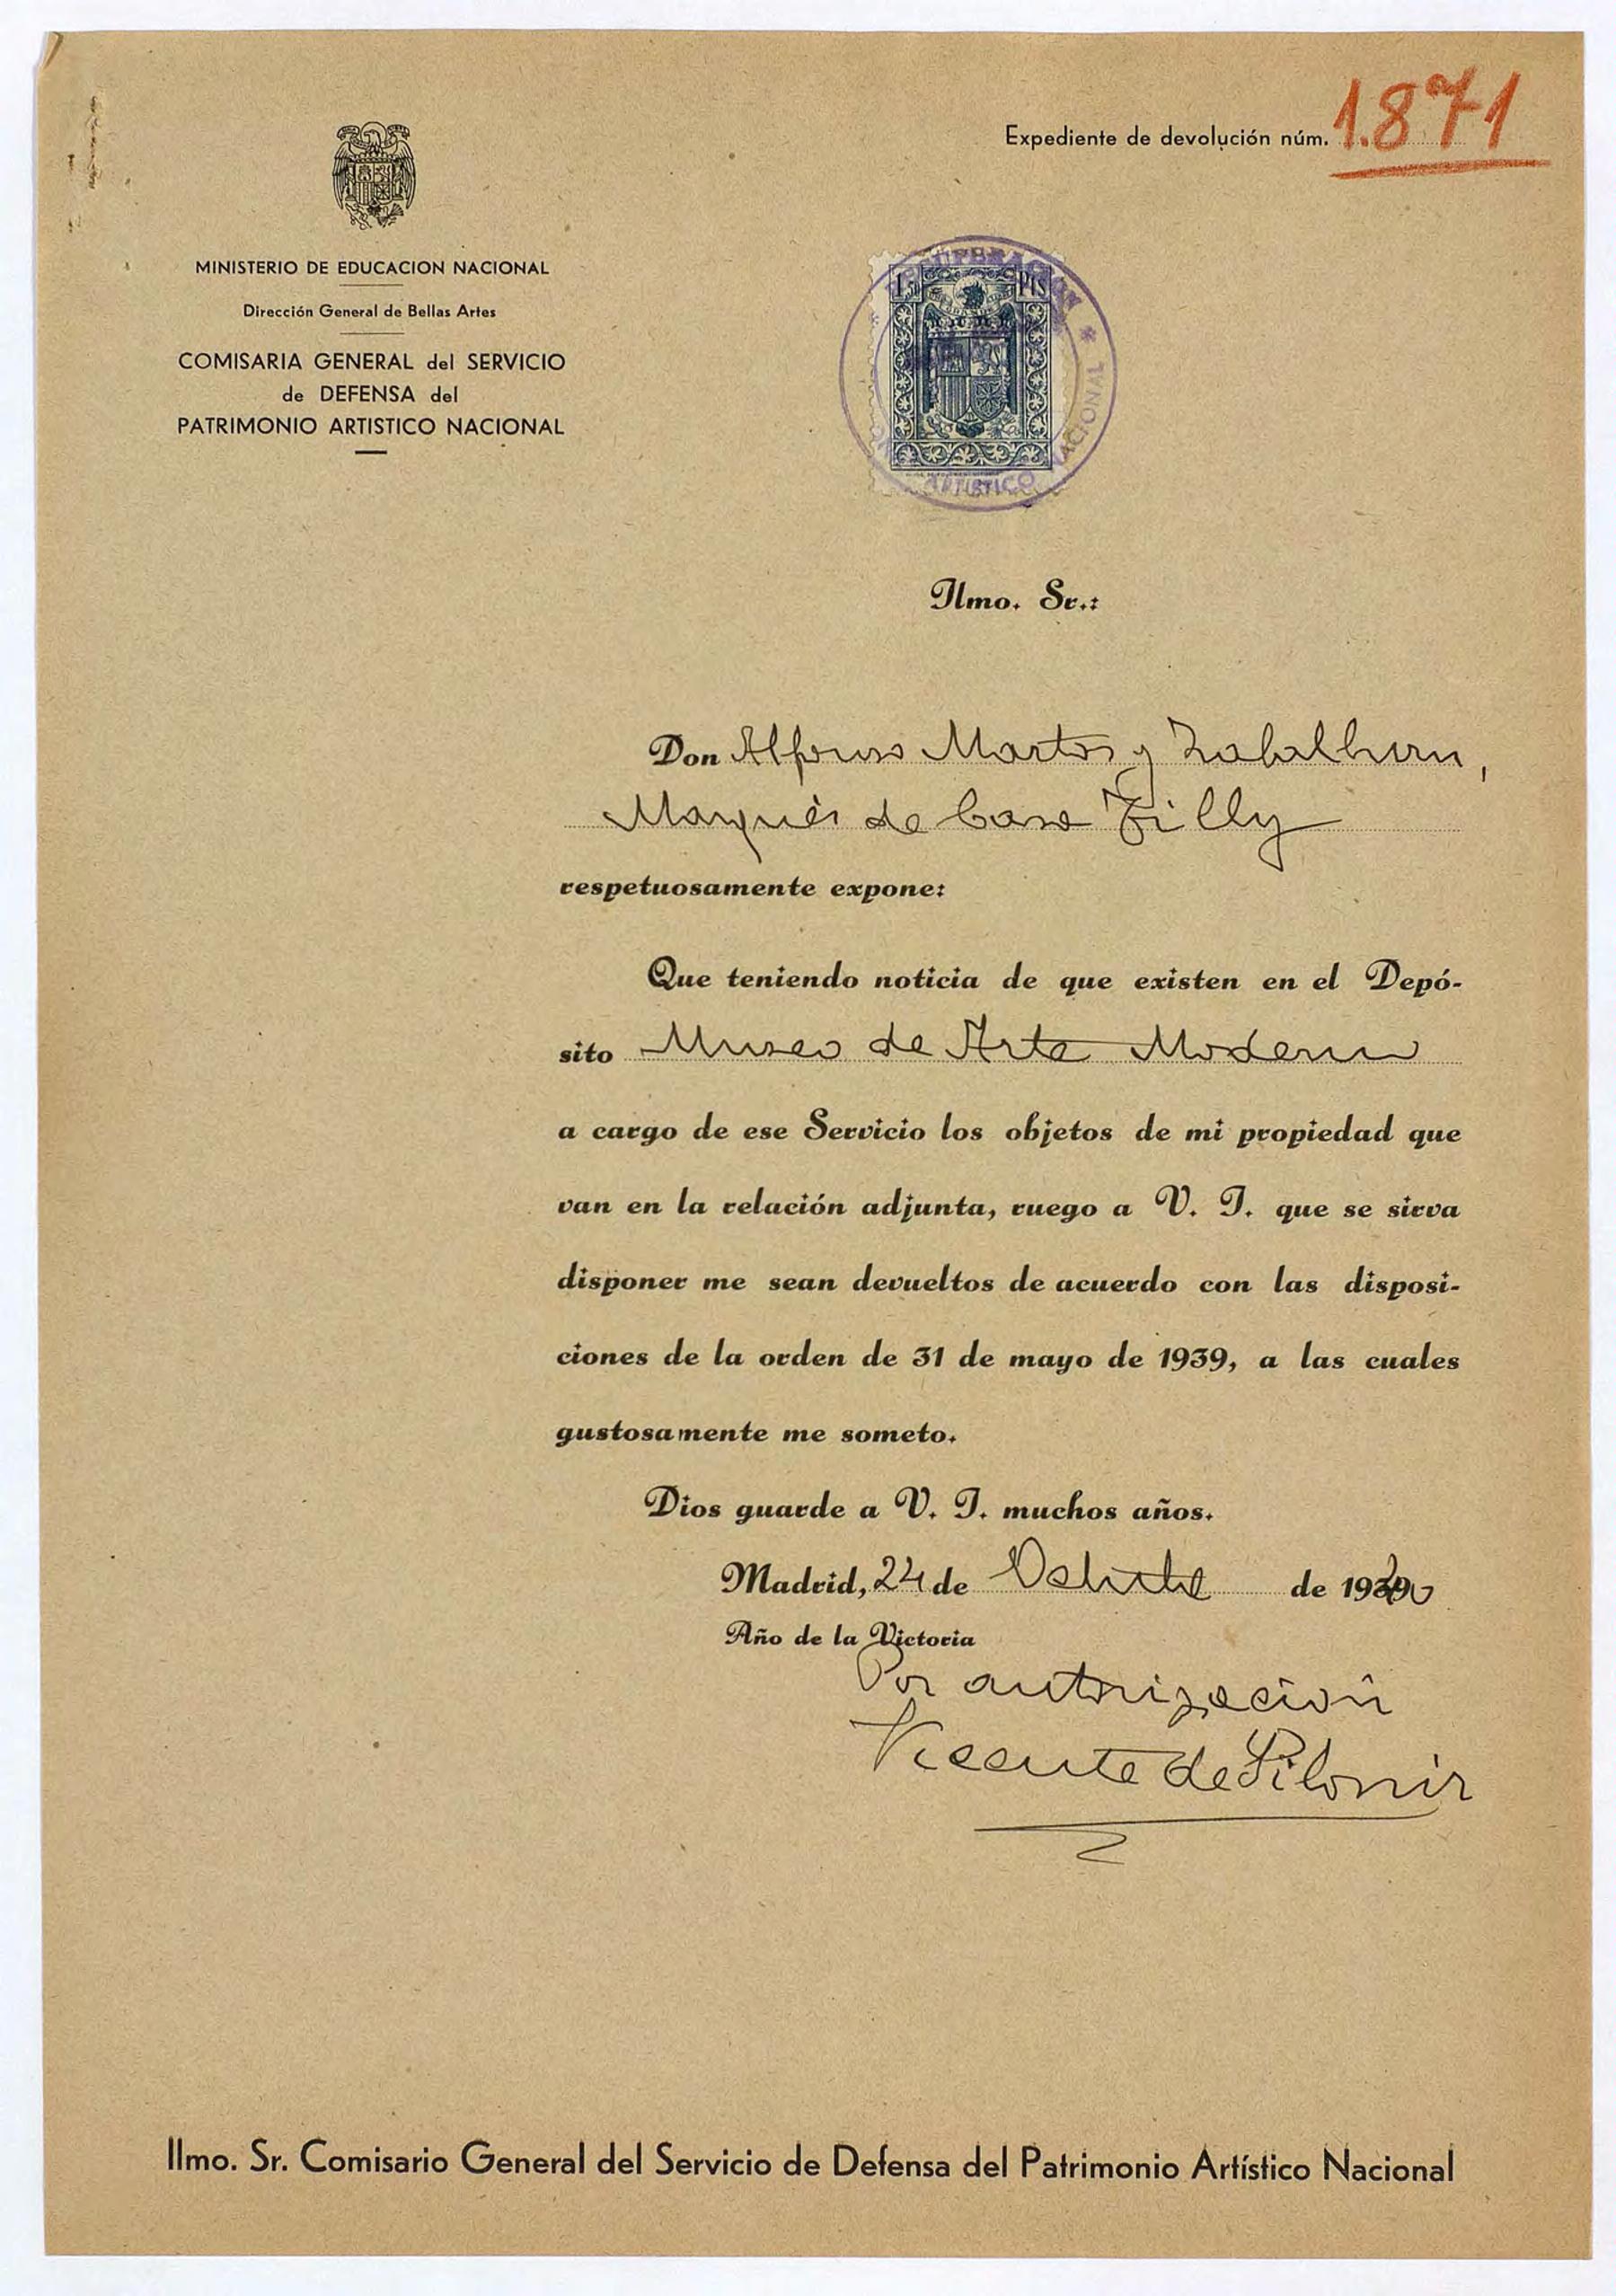 Expediente de devolución núm. 1.871
MINISTERIO DE EDUCACION NACIONAL
Dirección General de Bellas Artes
COMISARIA GENERAL del SERVICIO
de DEFENSA del
PATRIMONIO ARTISTICO NACIONAL
RECUPERACION * NACIONAL
ARTISTICO
Pts
Ilmo. Sr.:
Don Alfonso Martos y Zabalburu,
Marqués de Casa Tilly
respetuosamente expone:
Que teniendo noticia de que existen en el Depó-
sito Museo de Arte Moderno
a cargo de ese Servicio los objetos de mi propiedad que
van en la relación adjunta, ruego a V. I. que se sirva
disponer me sean devueltos de acuerdo con las disposi-
ciones de la orden de 31 de mayo de 1939, a las cuales
gustosamente me someto.
Dios guarde a V. I. muchos años.
Madrid, 24 de Octubre de 1940
Año de la Victoria
Por autorización
Vicente de
Ilmo. Sr. Comisario General del Servicio de Defensa del Patrimonio Artístico Nacional